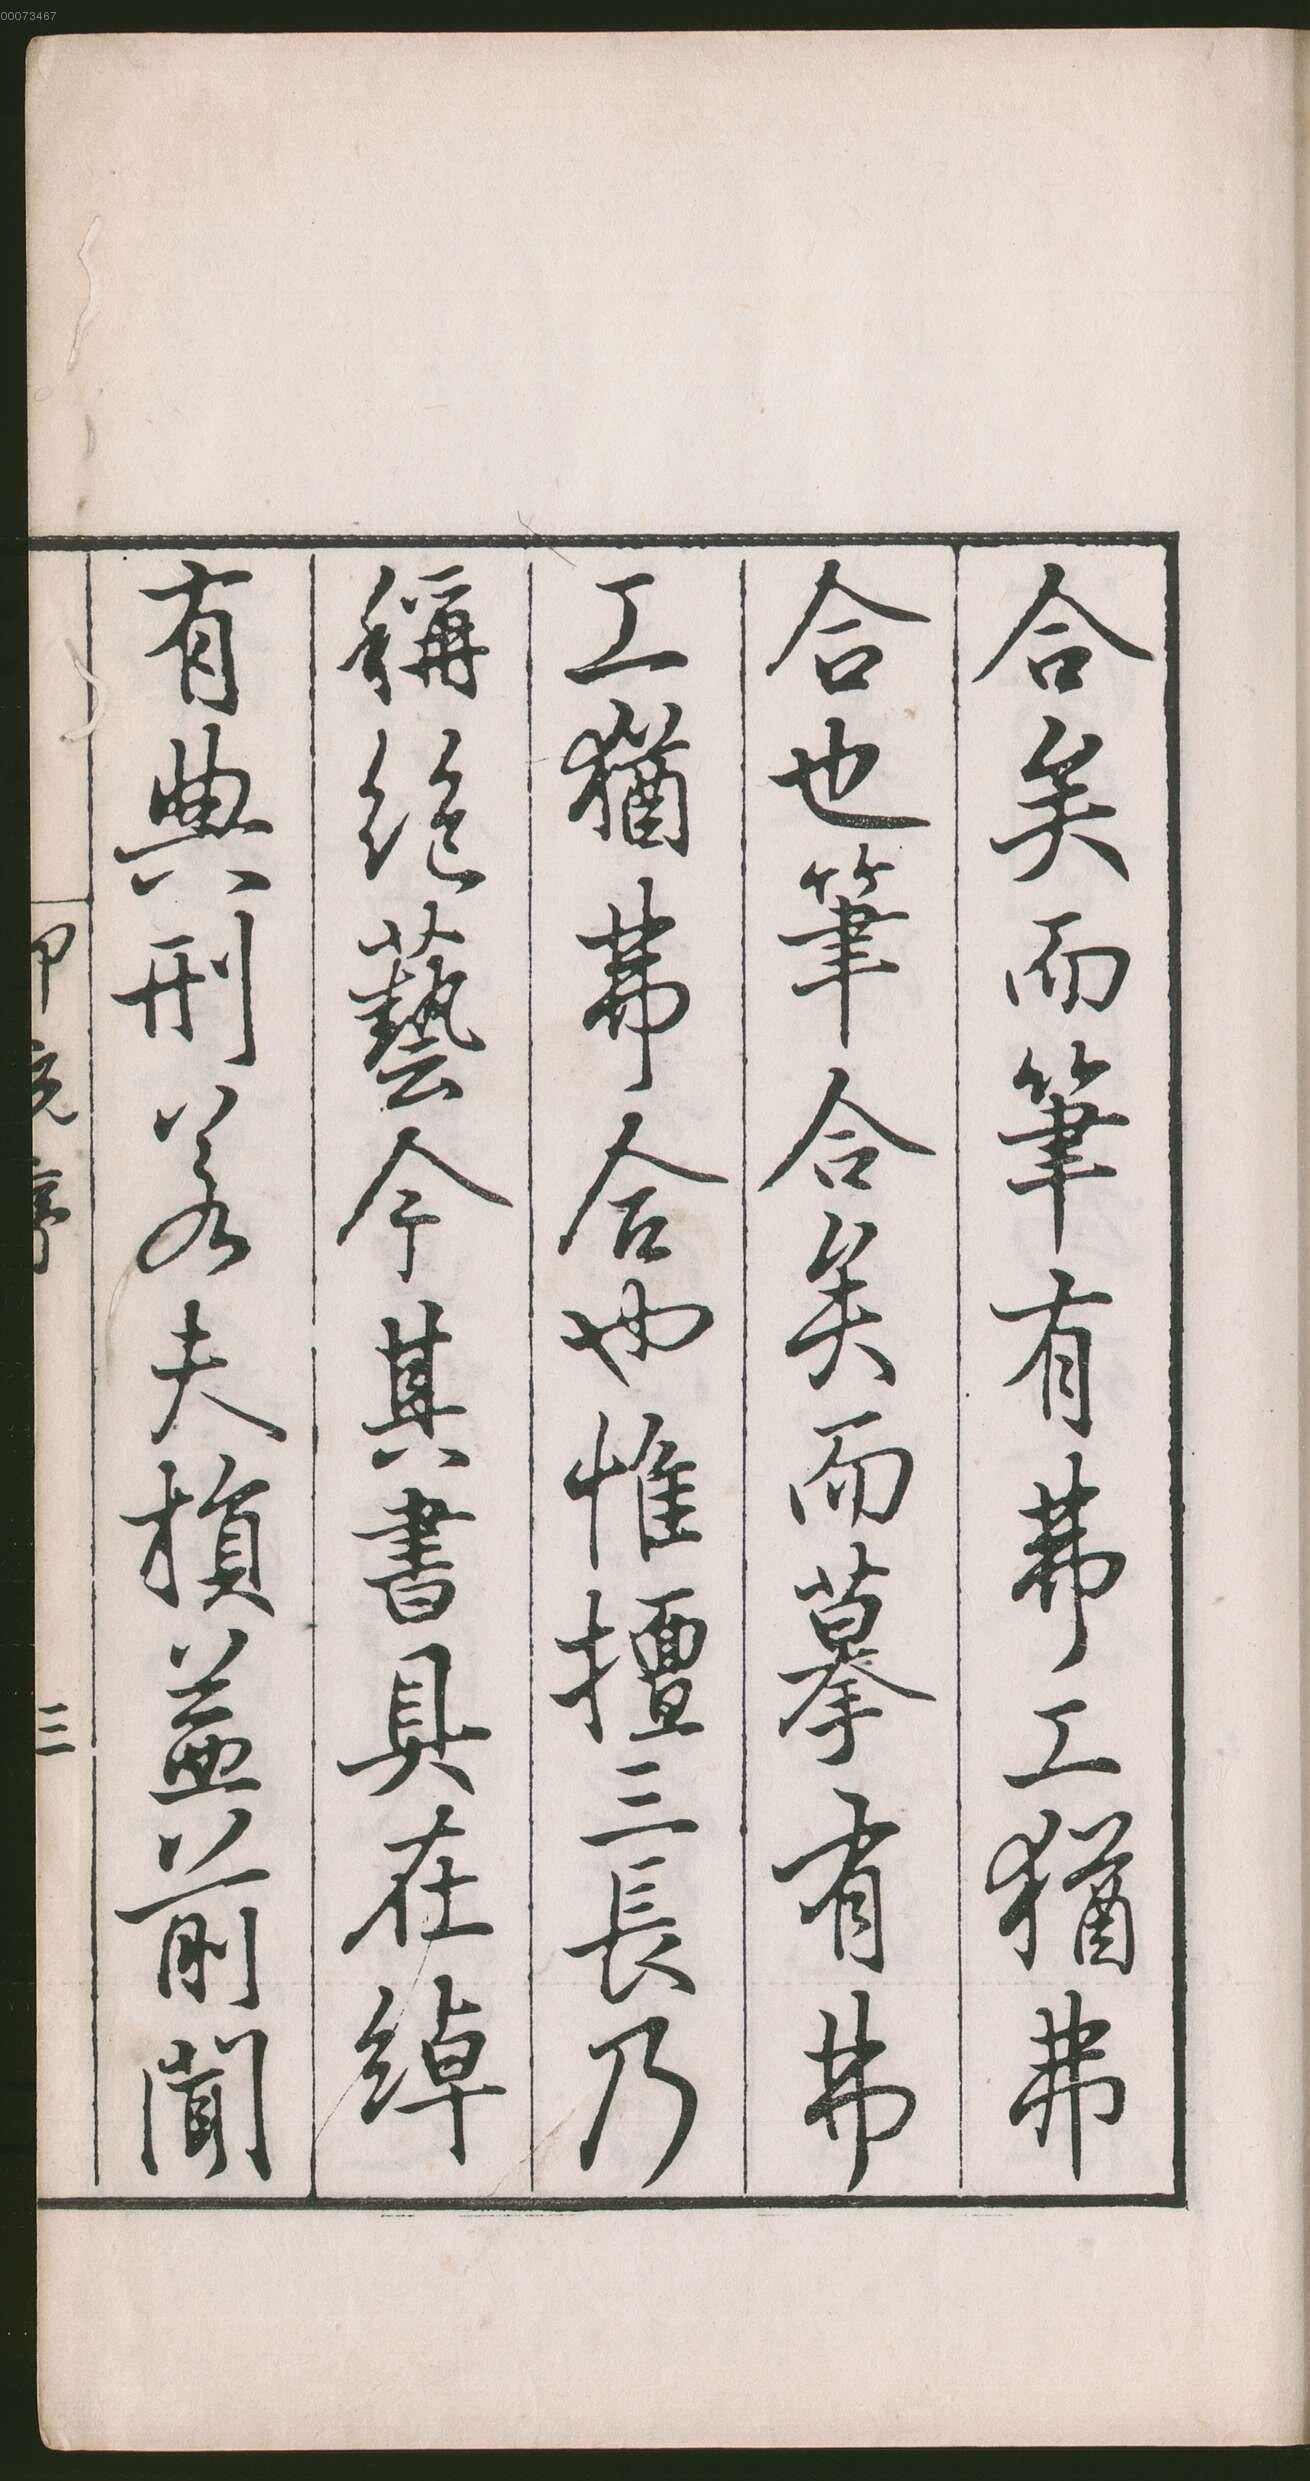 00073467
合矣而筆有弗工猶弗
合也筆合矣而摹有弗
工猶弗合也惟擅三長乃
稱絕藝今其書具在綽
有典刑若夫損益前聞
序
三